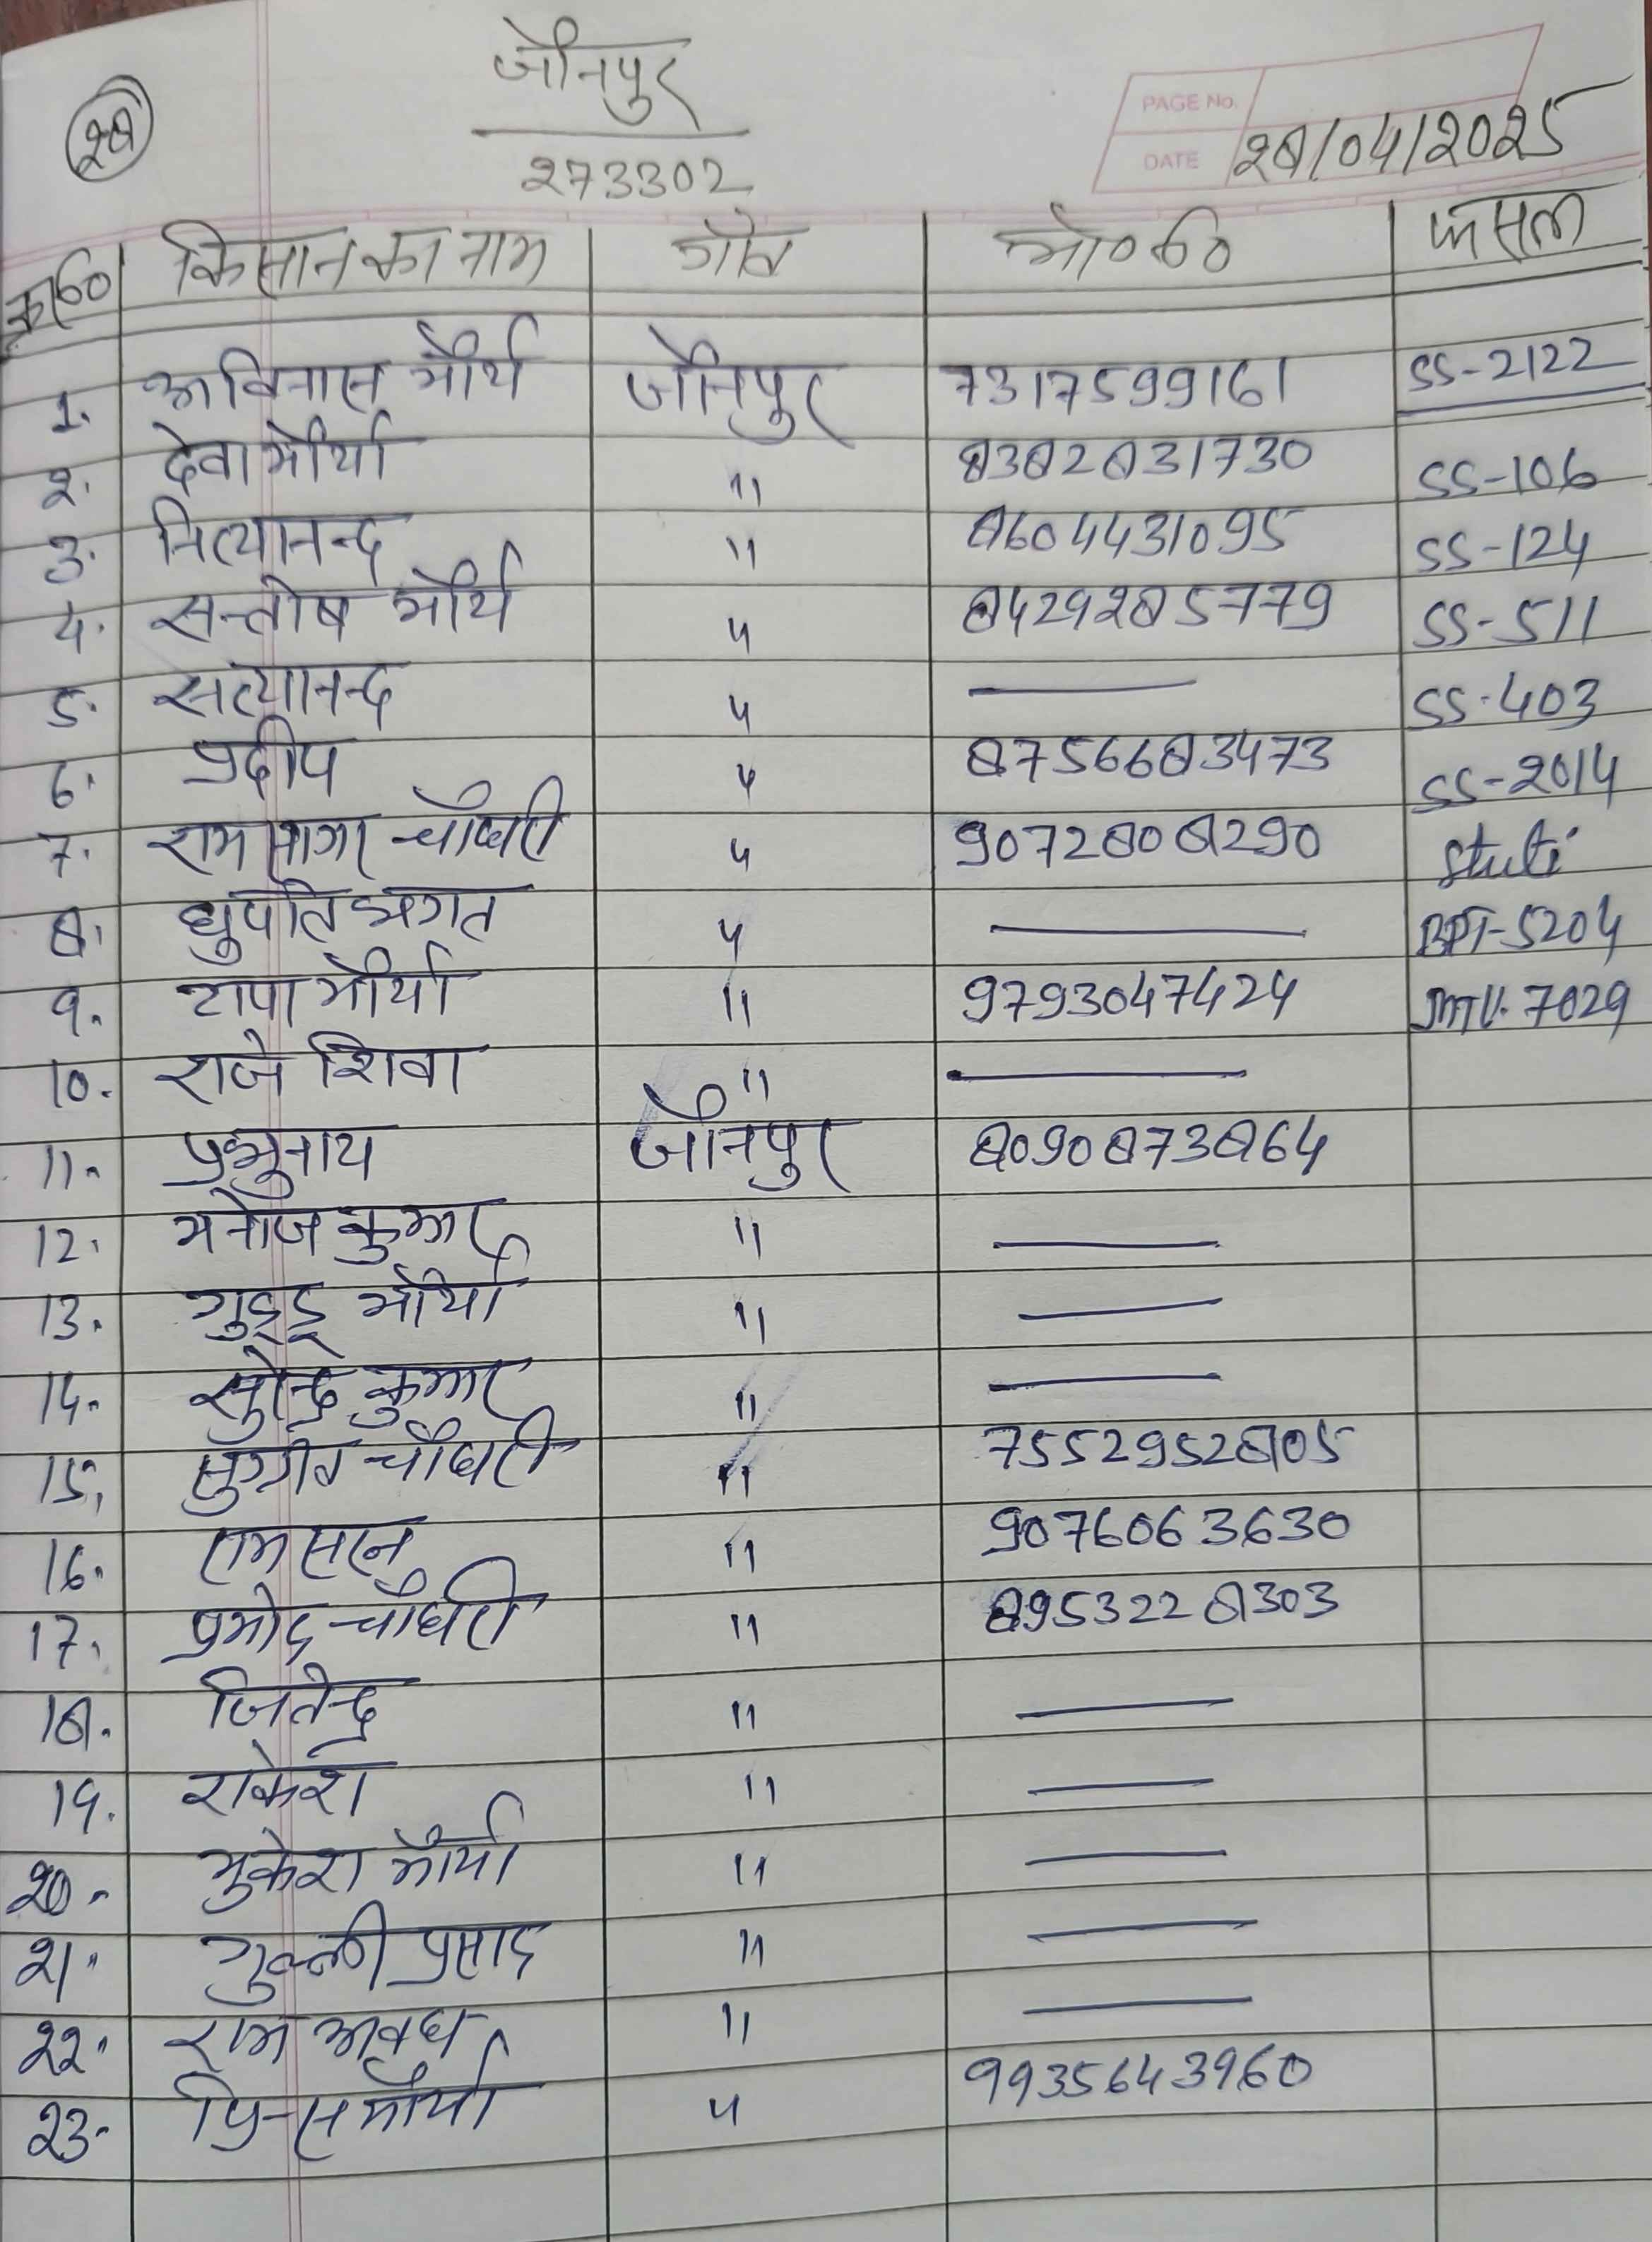 जौनपुर
28
273302
PAGE No.
DATE 28/04/2025
क्र०सं० किसान का नाम गाँव मो०सं० फसल
1. अविनास मौर्य जौनपुर 7317599161 SS-2122
2. देवा मौर्या " 8382831730 SS-106
3. नित्यानन्द " 8604431095 SS-124
4. सन्तोष मौर्य " 8429285779 SS-511
5. सत्यानन्द " — SS-403
6. प्रदीप " 8756683473 SS-2014
7. राम सागर चौधरी " 9072808290 Stuti
8. भगत " — BPT-5204
9. टापा मौर्या " 9793047424 MTU-7029
10. राजे शिवा " —
11. प्रभुनाथ जौनपुर 8090873864
12. मनोज कुमार " —
13. गुड्डू मौर्या " —
14. सुरेन्द्र कुमार " —
15. सुग्रीव चौधरी " 7552952805
16. राम सरन " 9076063630
17. प्रमोद चौधरी " 8953228303
18. जितेन्द्र " —
19. राकेश " —
20. मुकेश मौर्या " —
21. प्रसाद " —
22. राम अवध " —
23. प्रिन्स मौर्या " 9935643960